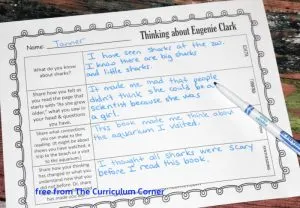 Thinking about Eugenie Clark
Name: Tanner
What do you know about sharks?
I have seen sharks at the zoo.
I know there are big sharks
and little sharks.
Share how you felt as
you read the page that
starts with "As she grew
older," what you saw in
your head & questions
you have.
It made me mad that people
didn't think she could be a
scientist because she was
a girl.
Share what connections
you can make to the
reading. (It might be about
sharks you have watched, a
trip to the beach or a visit
to the aquarium.)
This book made me think about
the aquarium I visited.
Share how your thinking
has changed or what you
understand now that
you did not before. Or, share
I thought all sharks were scary
before I read this book.
free from The Curriculum Corner